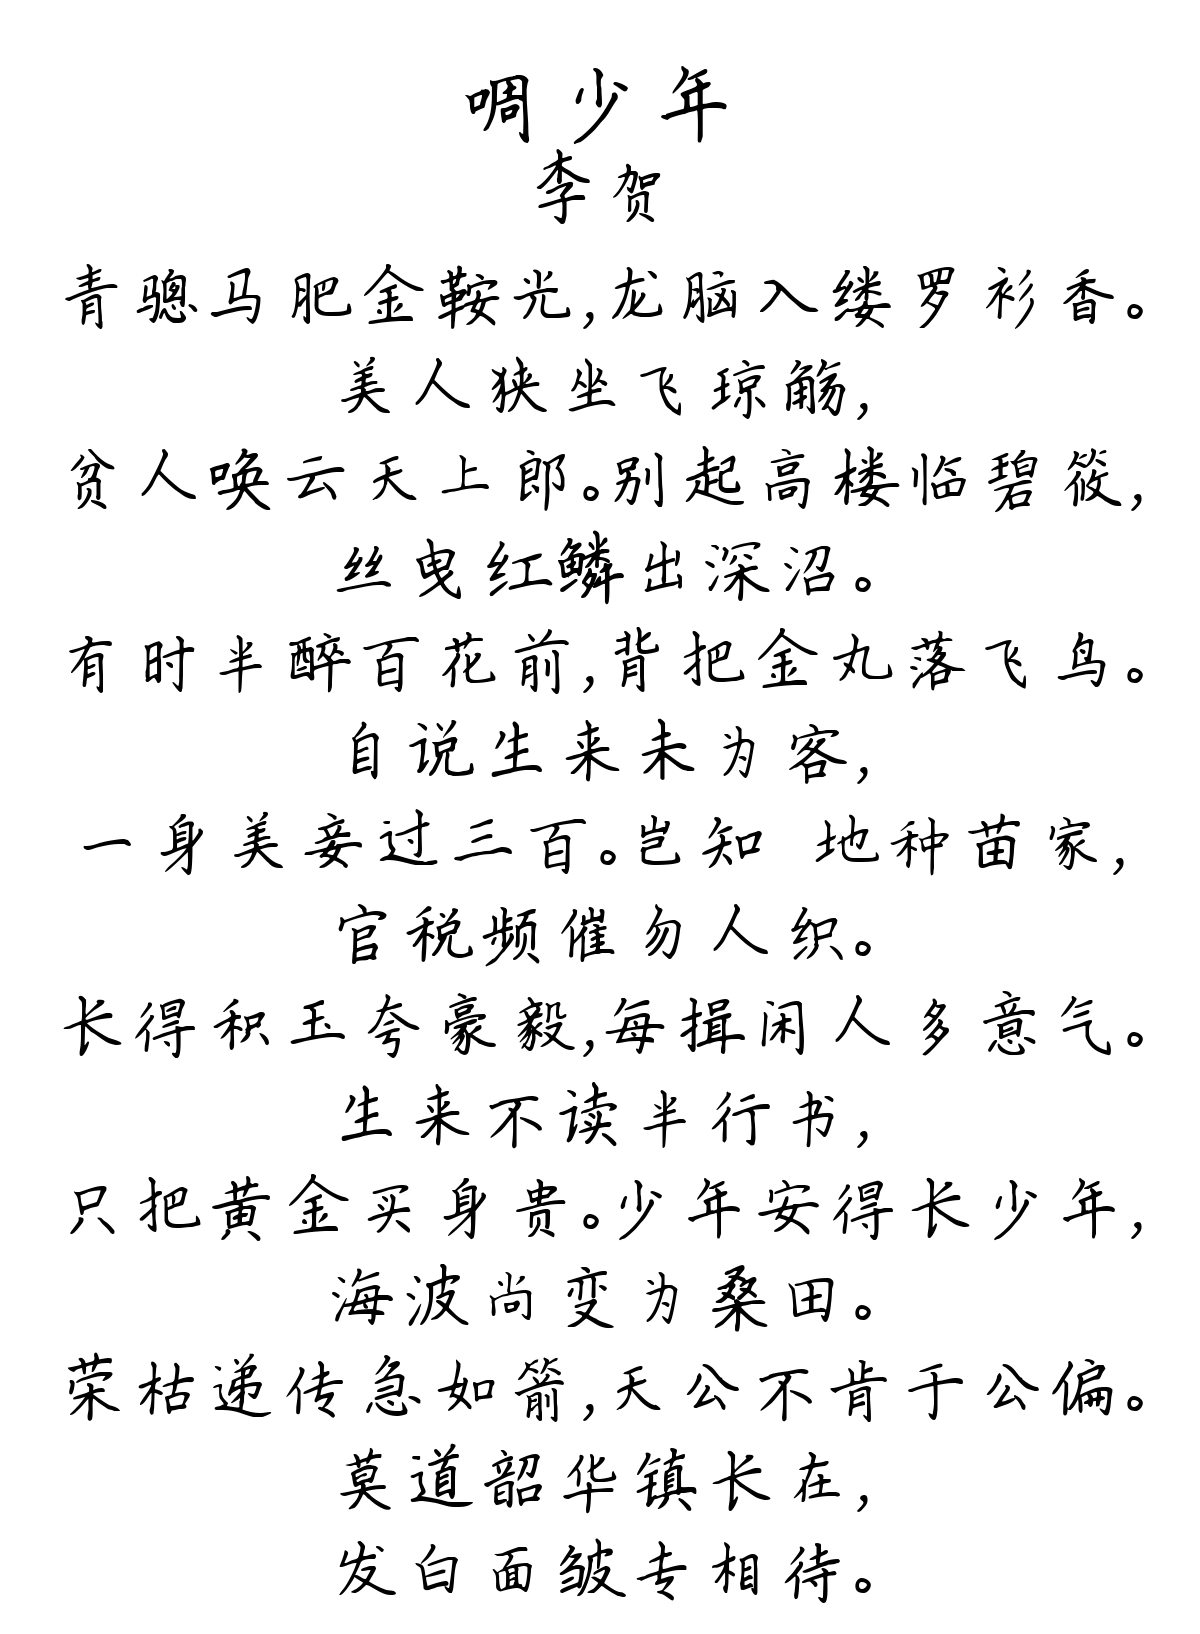 啁少年
李贺
青骢马肥金鞍光,龙脑入缕罗衫香。
美人狭坐飞琼觞,
贫人唤云天上郎。别起高楼临碧筱,
丝曳红鳞出深沼。
有时半醉百花前,背把金丸落飞鸟。
自说生来未为客,
一身美妾过三百。岂知 地种苗家,
官税频催勿人织。
长得积玉夸豪毅,每揖闲人多意气。
生来不读半行书,
只把黄金买身贵。少年安得长少年,
海波尚变为桑田。
荣枯递传急如箭,天公不肯于公偏。
莫道韶华镇长在,
发白面皱专相待。